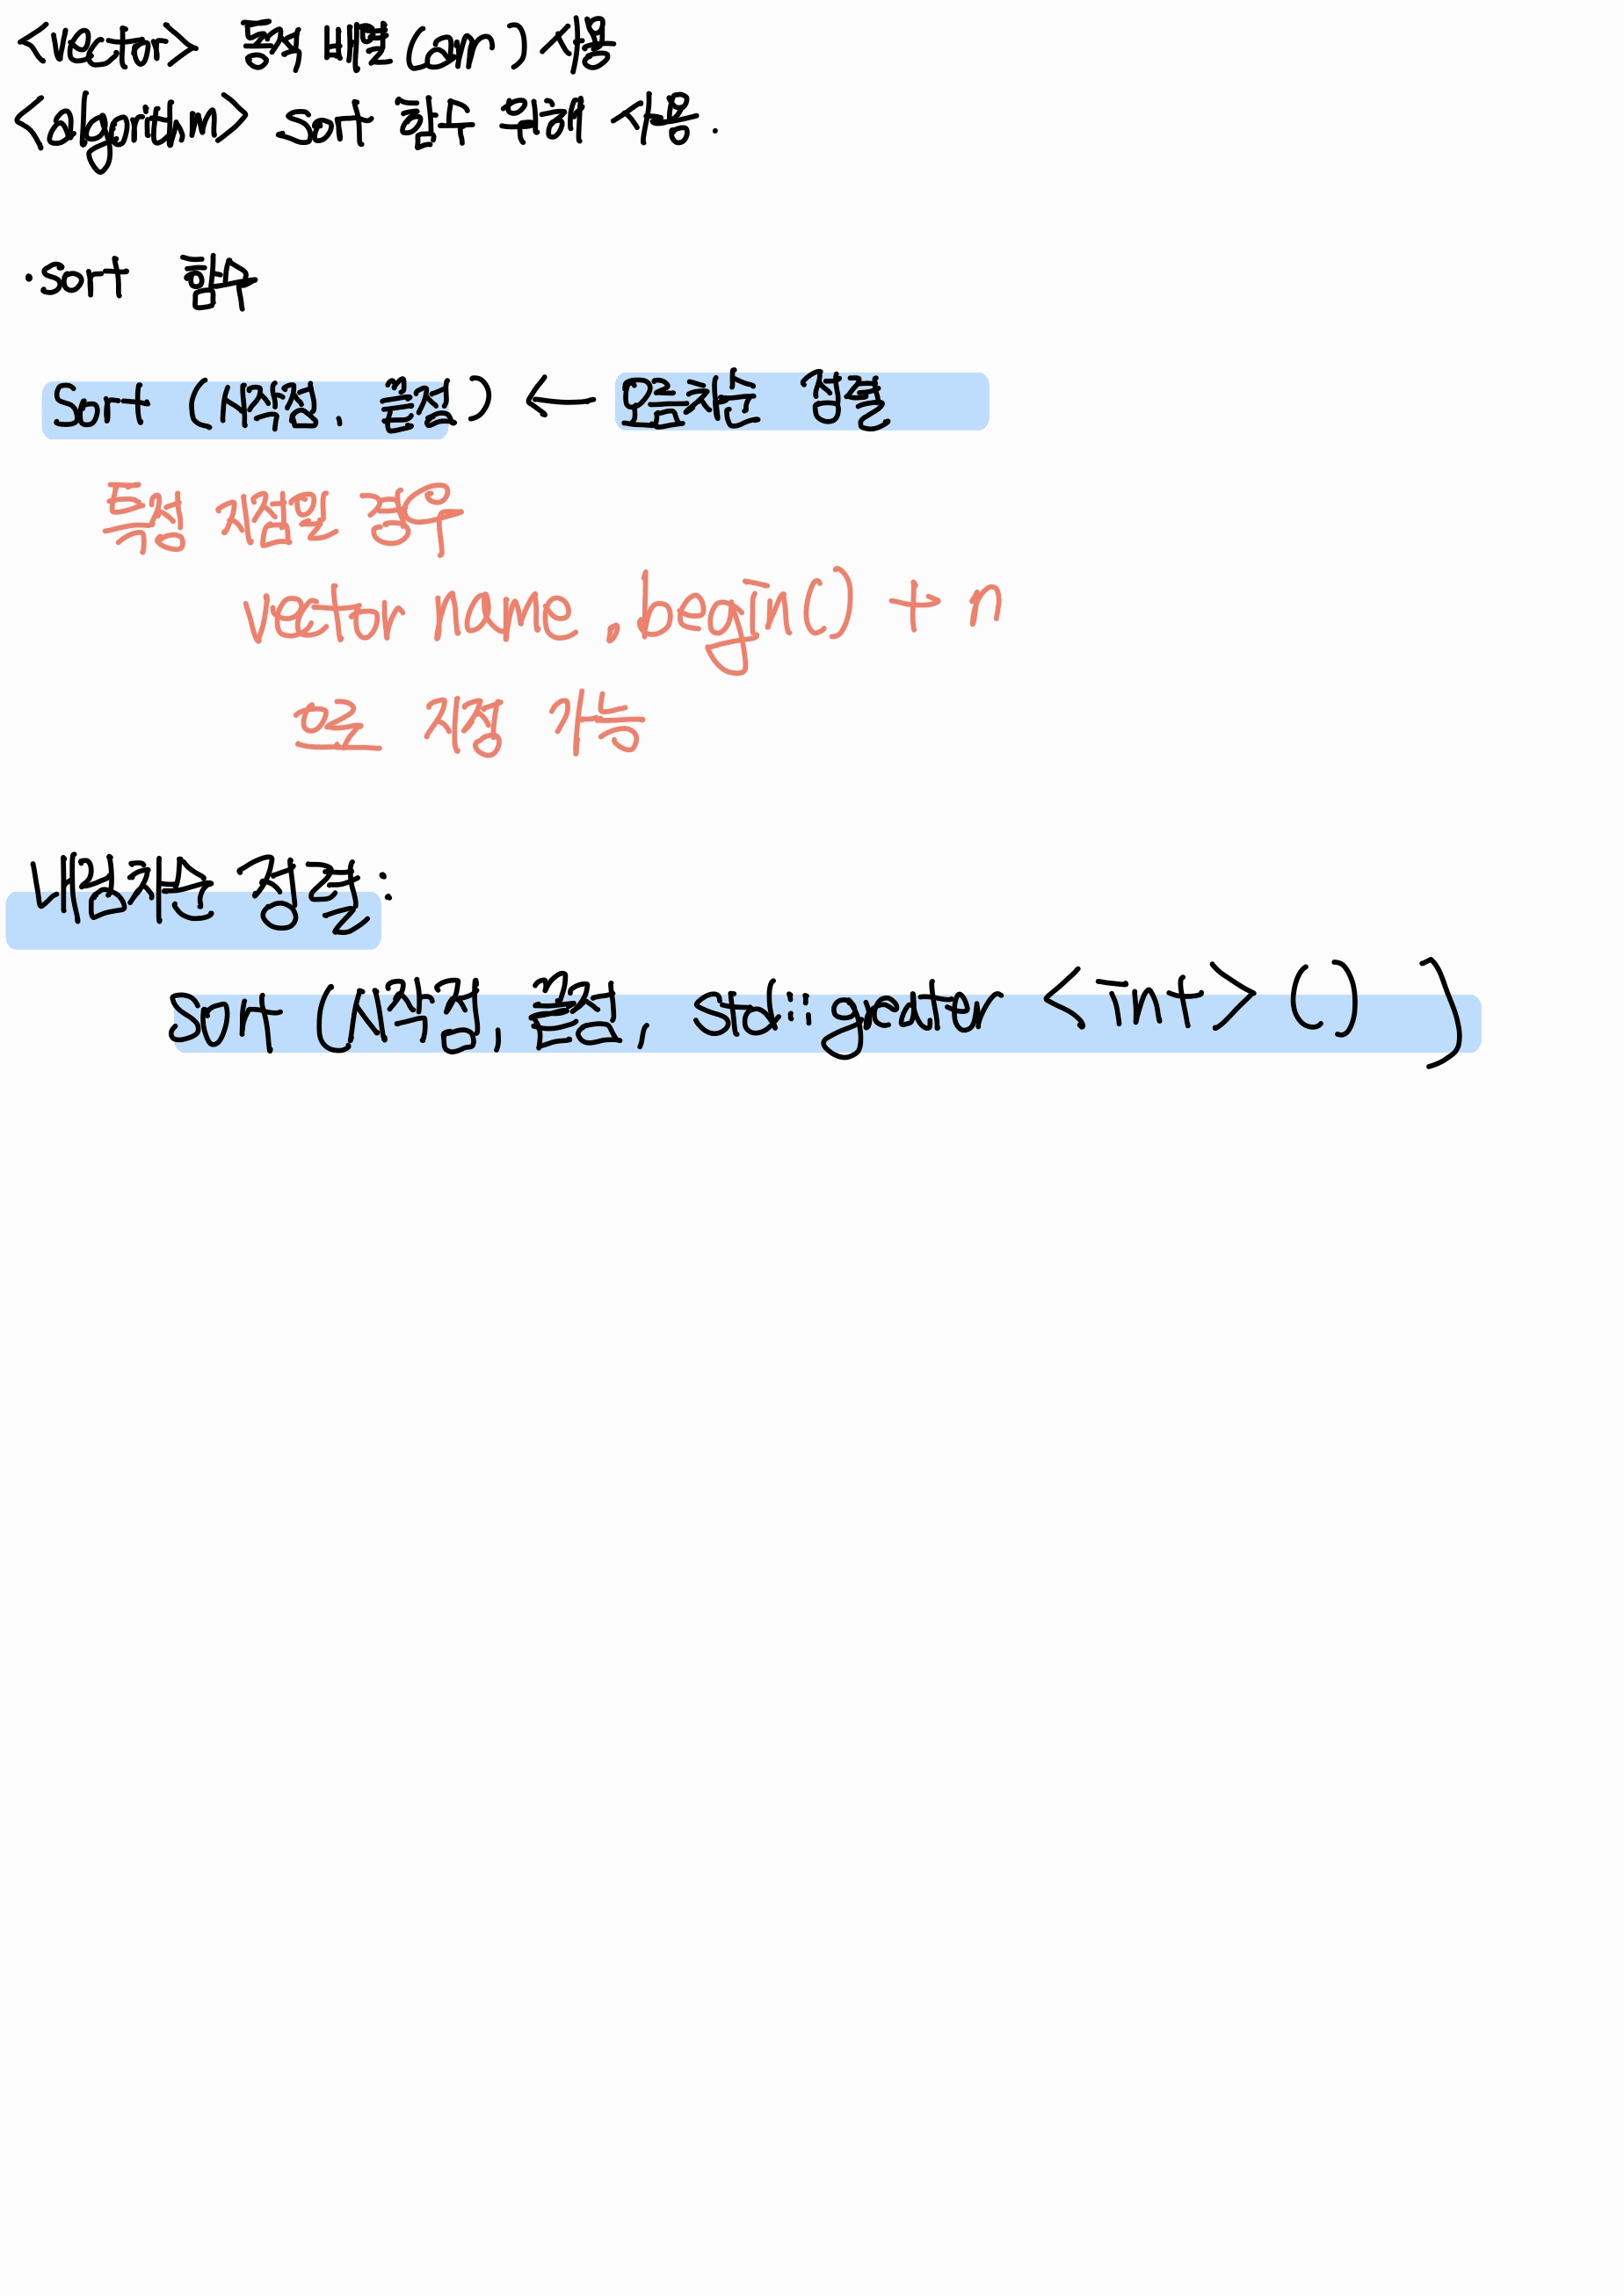 <vector> 동적 배열(arr) 사용
<algorithm> sort 함수 위해 사용.
·sort 함수
sort (시작점, 끝점) ← 오름차순 정렬
특정 개섭일 경우
vector name.begin() + n
으로 지정 가능
내림차순 정렬:
sort (시작점, 끝점, std::greater <int> () )